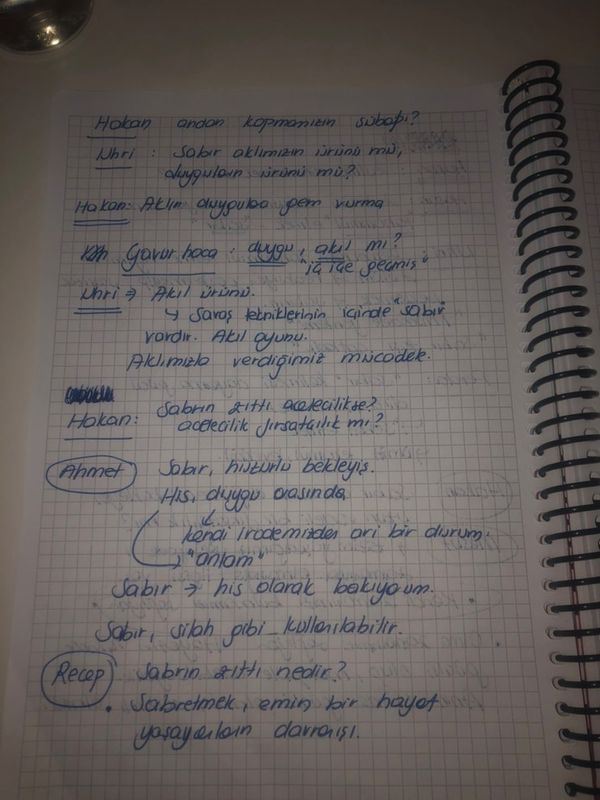 Hakan andan kopmamızın sübabı?
Uhri : Sabır aklımızın ürünü mü,
duyguların ürünü mü?
Hakan: Aklın duygulara gem vurma
Gavur hoca : duygu, akıl mı?
"iç içe geçmiş"
Uhri ⇒ Akıl ürünü.
↳ Savaş tekniklerinin içinde "sabır"
vardır. Akıl oyunu.
Aklımızla verdiğimiz mücadele.
Hakan: Sabrın zıttı acelecilikse?
acelecilik fırsatçılık mı?
Ahmet Sabır, huzurlu bekleyiş.
His, duygu arasında
kendi irademizden ari bir durum.
"anlam"
Sabır → his olarak bakıyorum.
Sabır, silah gibi kullanılabilir.
Recep Sabrın zıttı nedir?
• Sabretmek, emin bir hayat
yaşayanların davranışı.